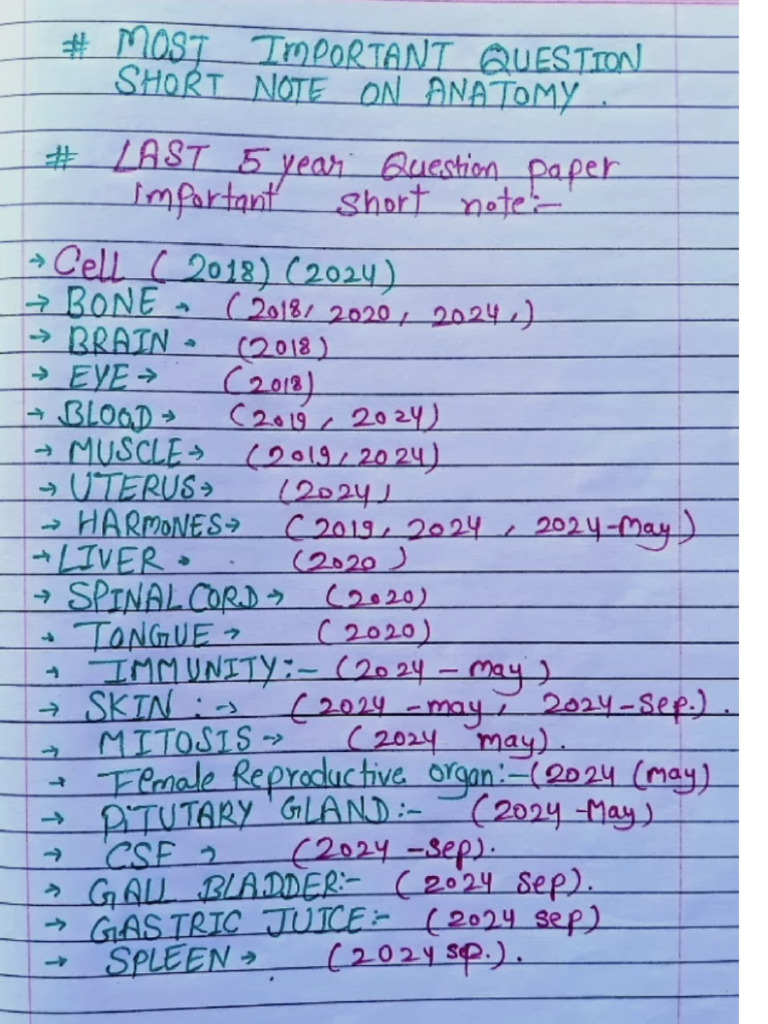 # MOST IMPORTANT QUESTION
SHORT NOTE ON ANATOMY.
# LAST 5 year Question paper
important short note:-
→ Cell (2018) (2024)
→ BONE → (2018, 2020, 2024,)
→ BRAIN → (2018)
→ EYE → (2018)
→ BLOOD → (2019, 2024)
→ MUSCLE → (2019, 2024)
→ UTERUS → (2024)
→ HARMONES → (2019, 2024, 2024-May)
→ LIVER → (2020)
→ SPINAL CORD → (2020)
→ TONGUE → (2020)
→ IMMUNITY:- (2024 - may)
→ SKIN :→ (2024 -may, 2024-Sep.).
→ MITOSIS → (2024 may).
→ Female Reproductive organ:-(2024 (may)
→ PITUTARY GLAND:- (2024 -May)
→ CSF → (2024 -Sep).
→ GALL BLADDER:- (2024 Sep).
→ GASTRIC JUICE:- (2024 sep)
→ SPLEEN → (2024 sep.).